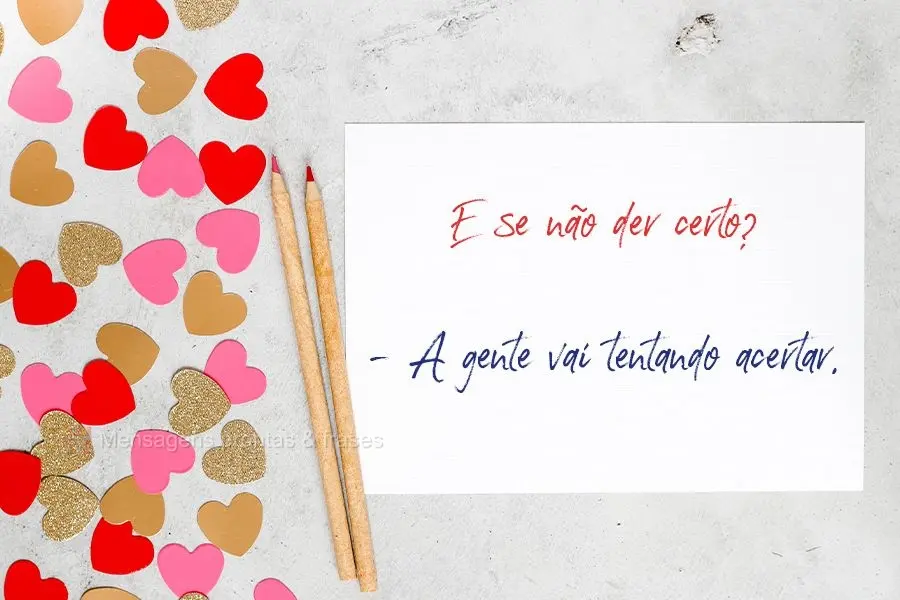 E se não der certo?
- A gente vai tentando acertar.
Mensagens Prontas & frases